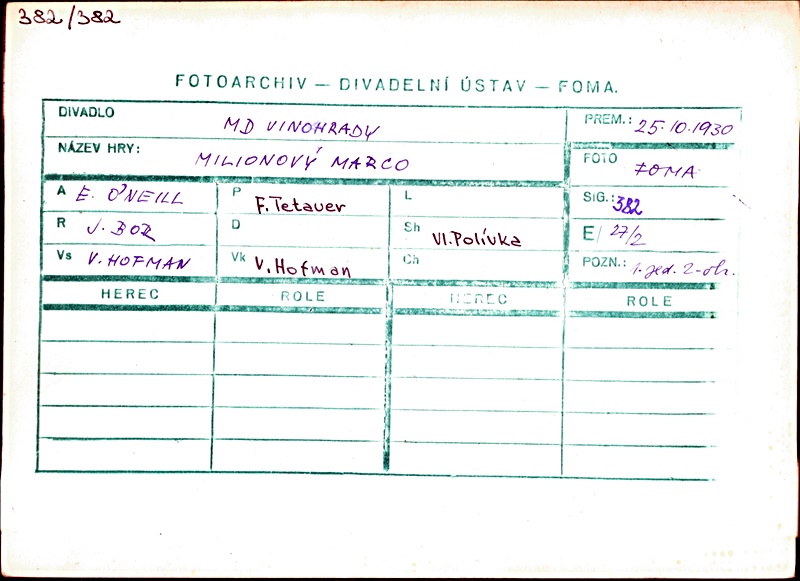 382/382
FOTOARCHIV — DIVADELNÍ ÚSTAV — FOMA.
DIVADLO MD VINOHRADY PREM.: 25.10.1930
NÁZEV HRY: MILIONOVÝ MARCO FOTO FOMA
A E. O'NEILL P F. Tetauer L SIG.: 382
R J. BOR D Sh Vl. Polívka E/ 27/2
Vs V. HOFMAN Vk V. Hofman Ch POZN.: 1. jed. 2. obr.
HEREC ROLE HEREC ROLE